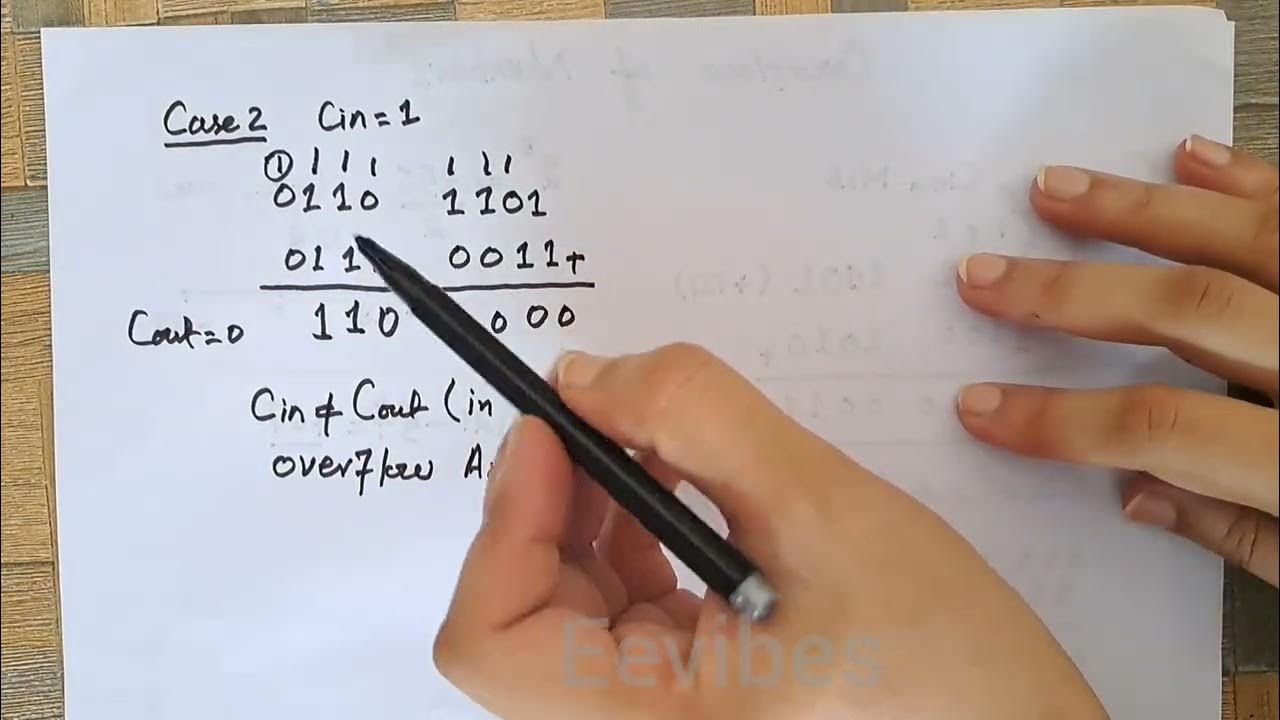 Case 2 Cin = 1
① 1 1 1 1 1 1
0110 1101
011 0011+
Cout=0 110 000
Cin ≠ Cout (in
overflow
Eevibes